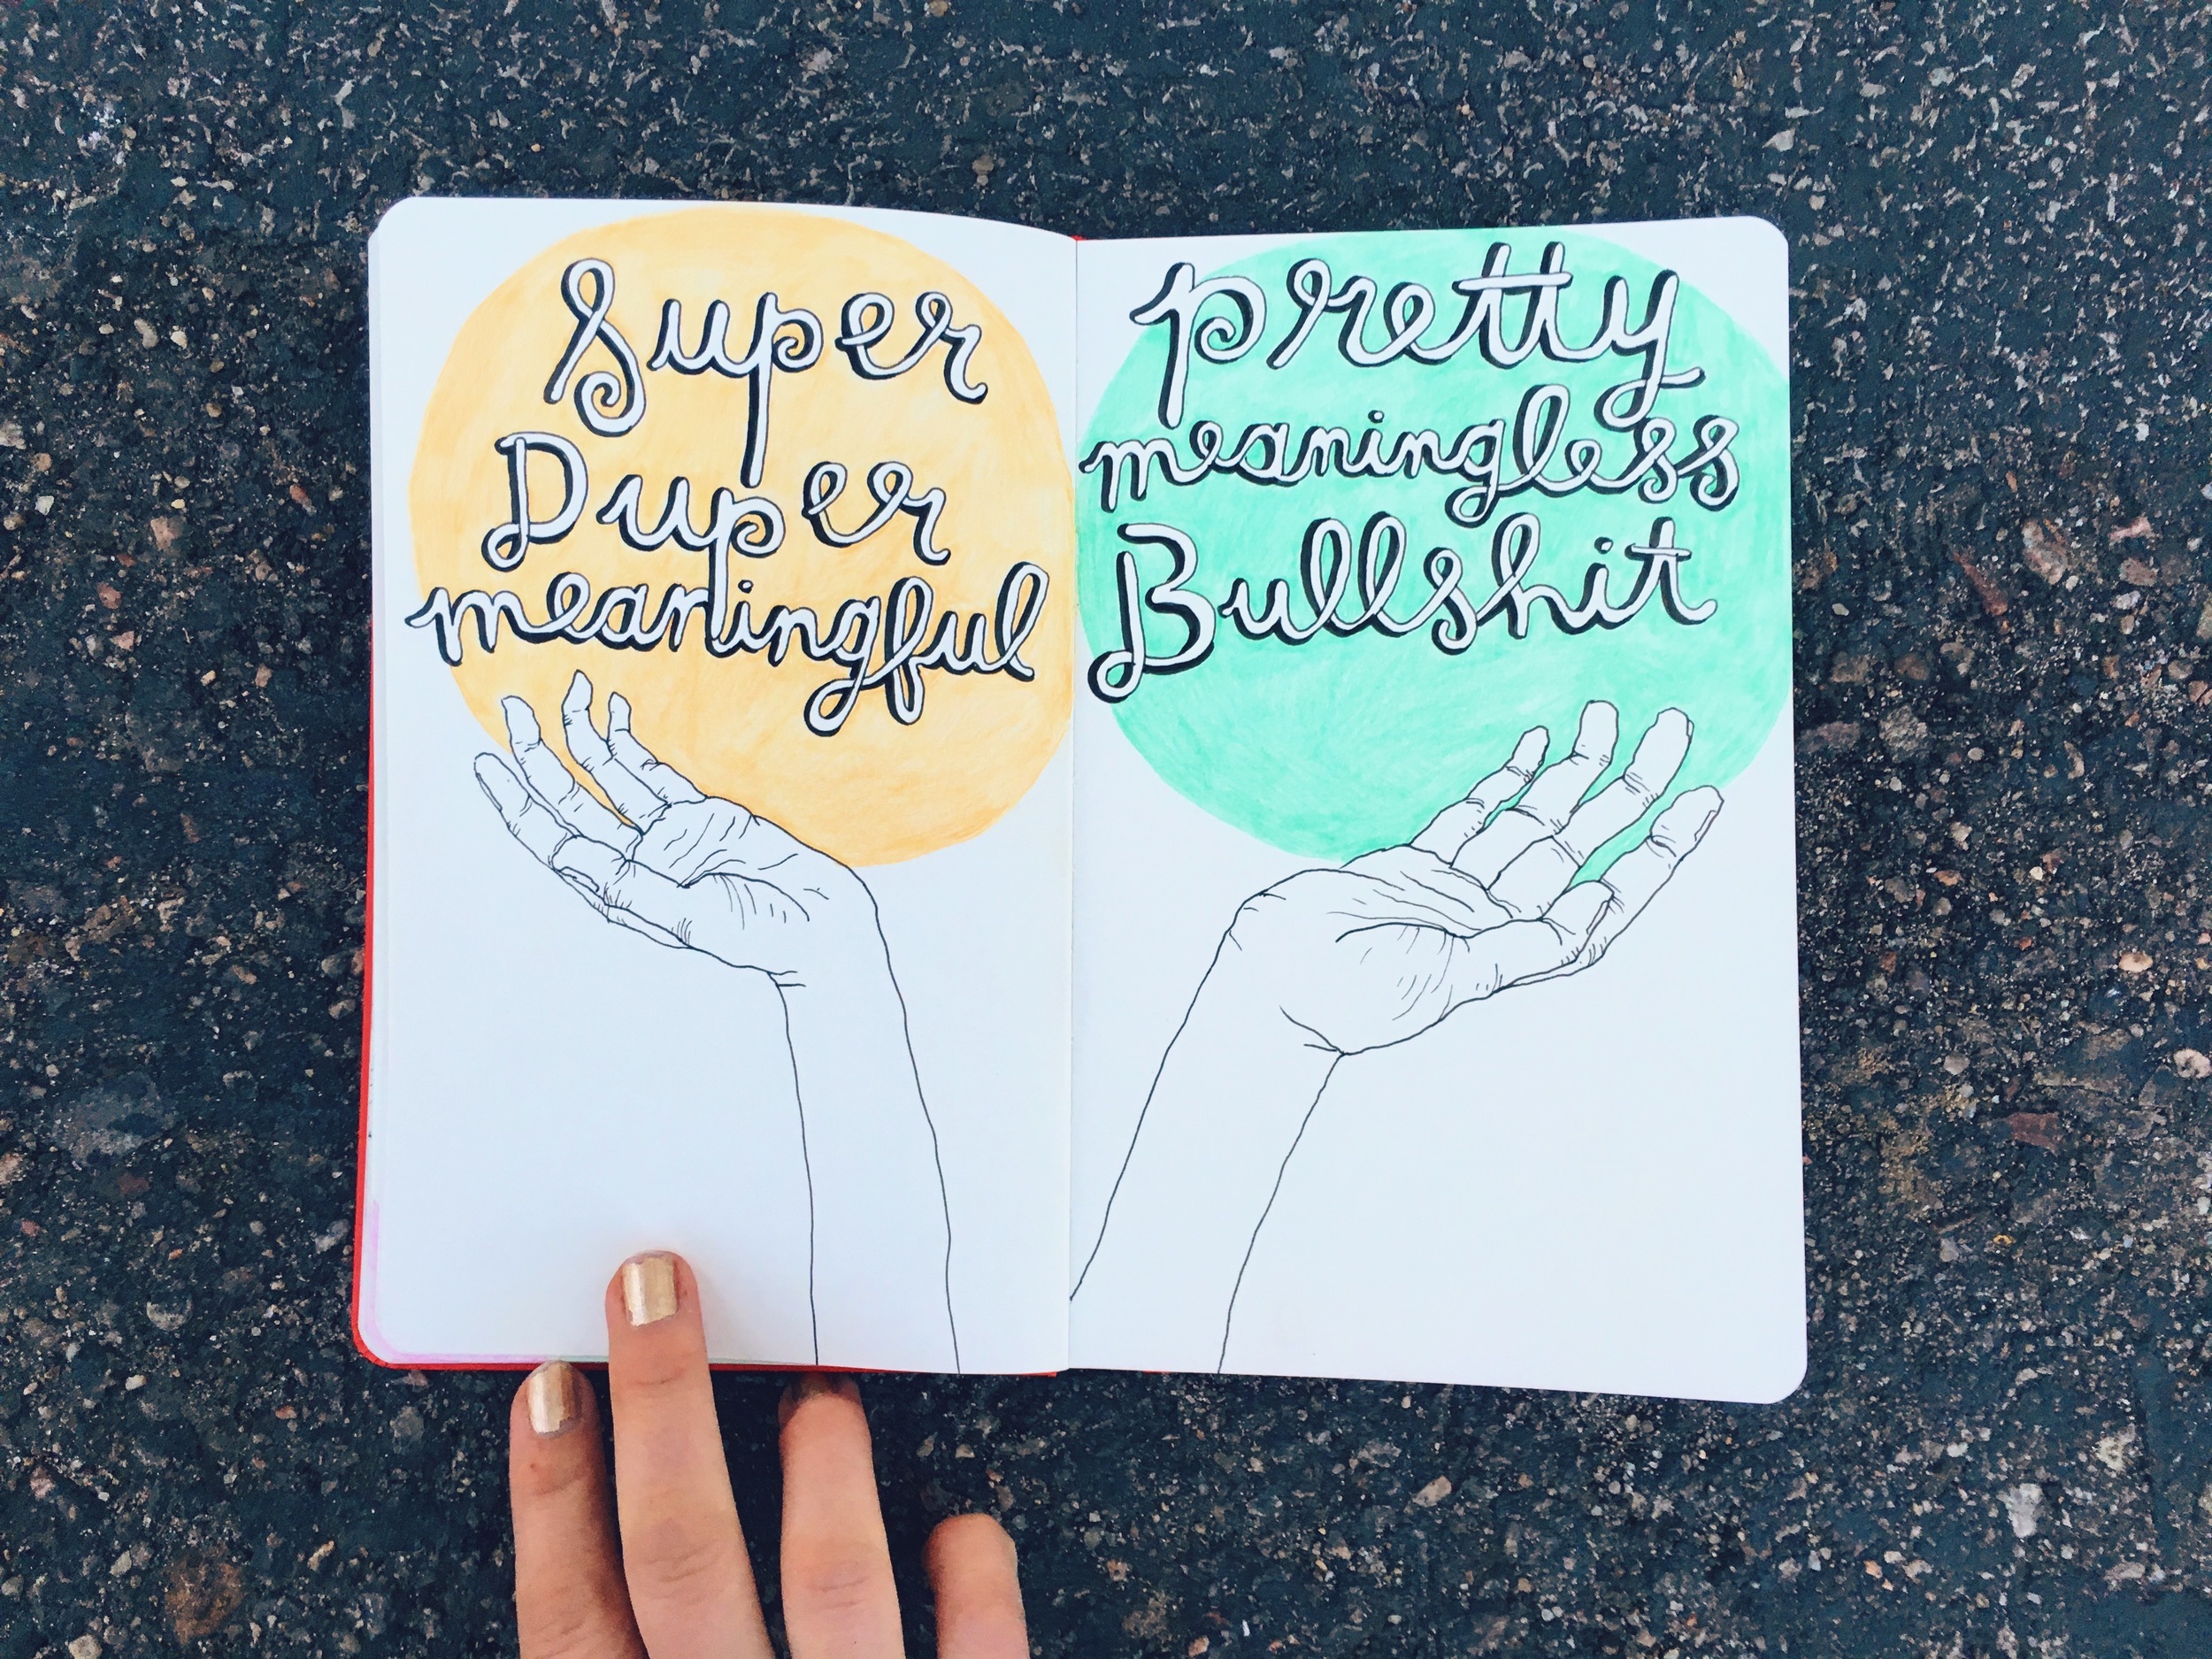 Super
Duper
meaningful
pretty
meaningless
Bullshit